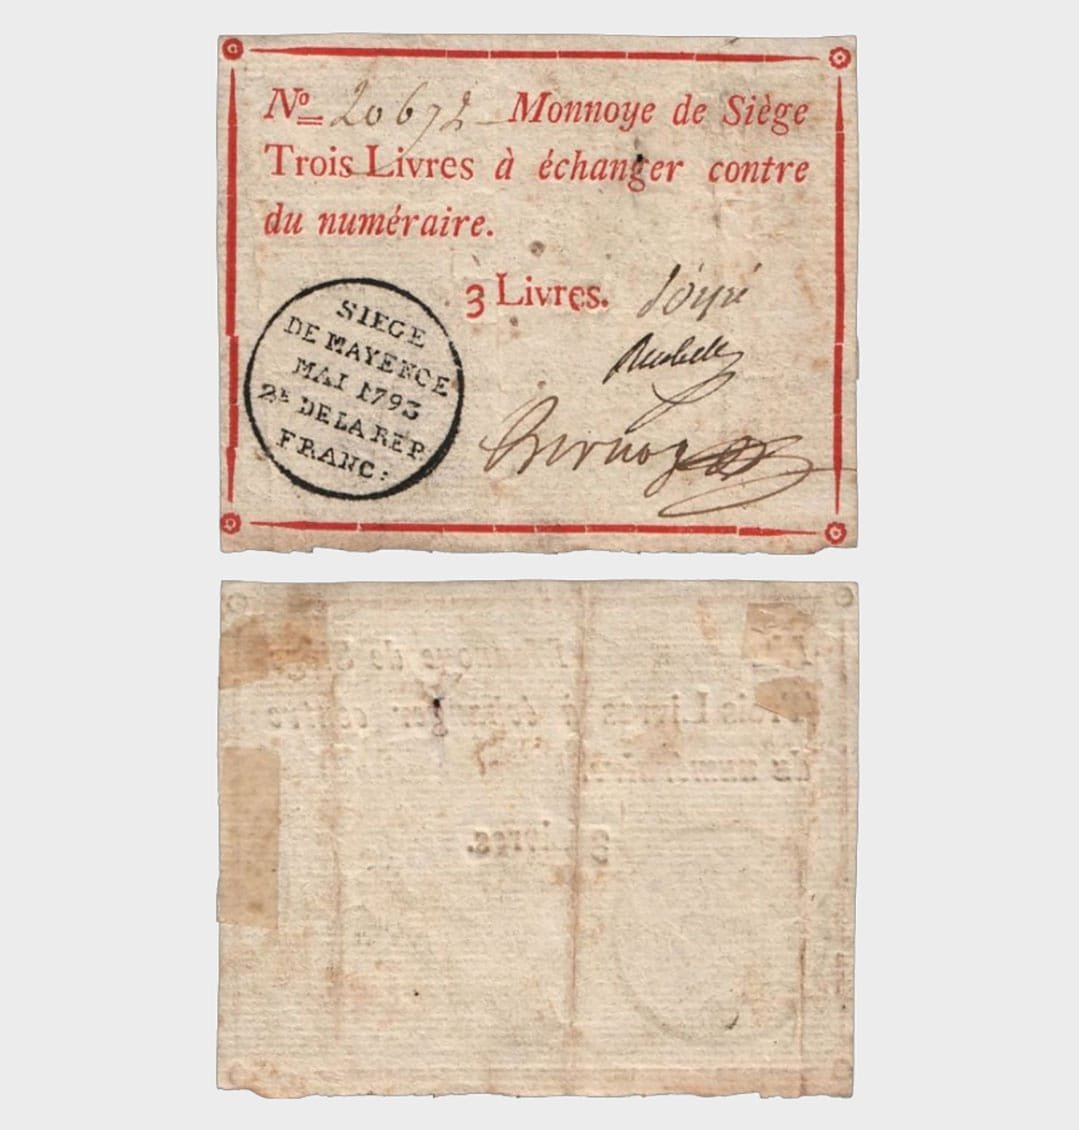 Nº 20672 Monnoye de Siège
Trois Livres à échanger contre
du numéraire.
3 Livres.
SIEGE
DE MAYENCE
MAI 1793
2E DE LA REP.
FRANC: